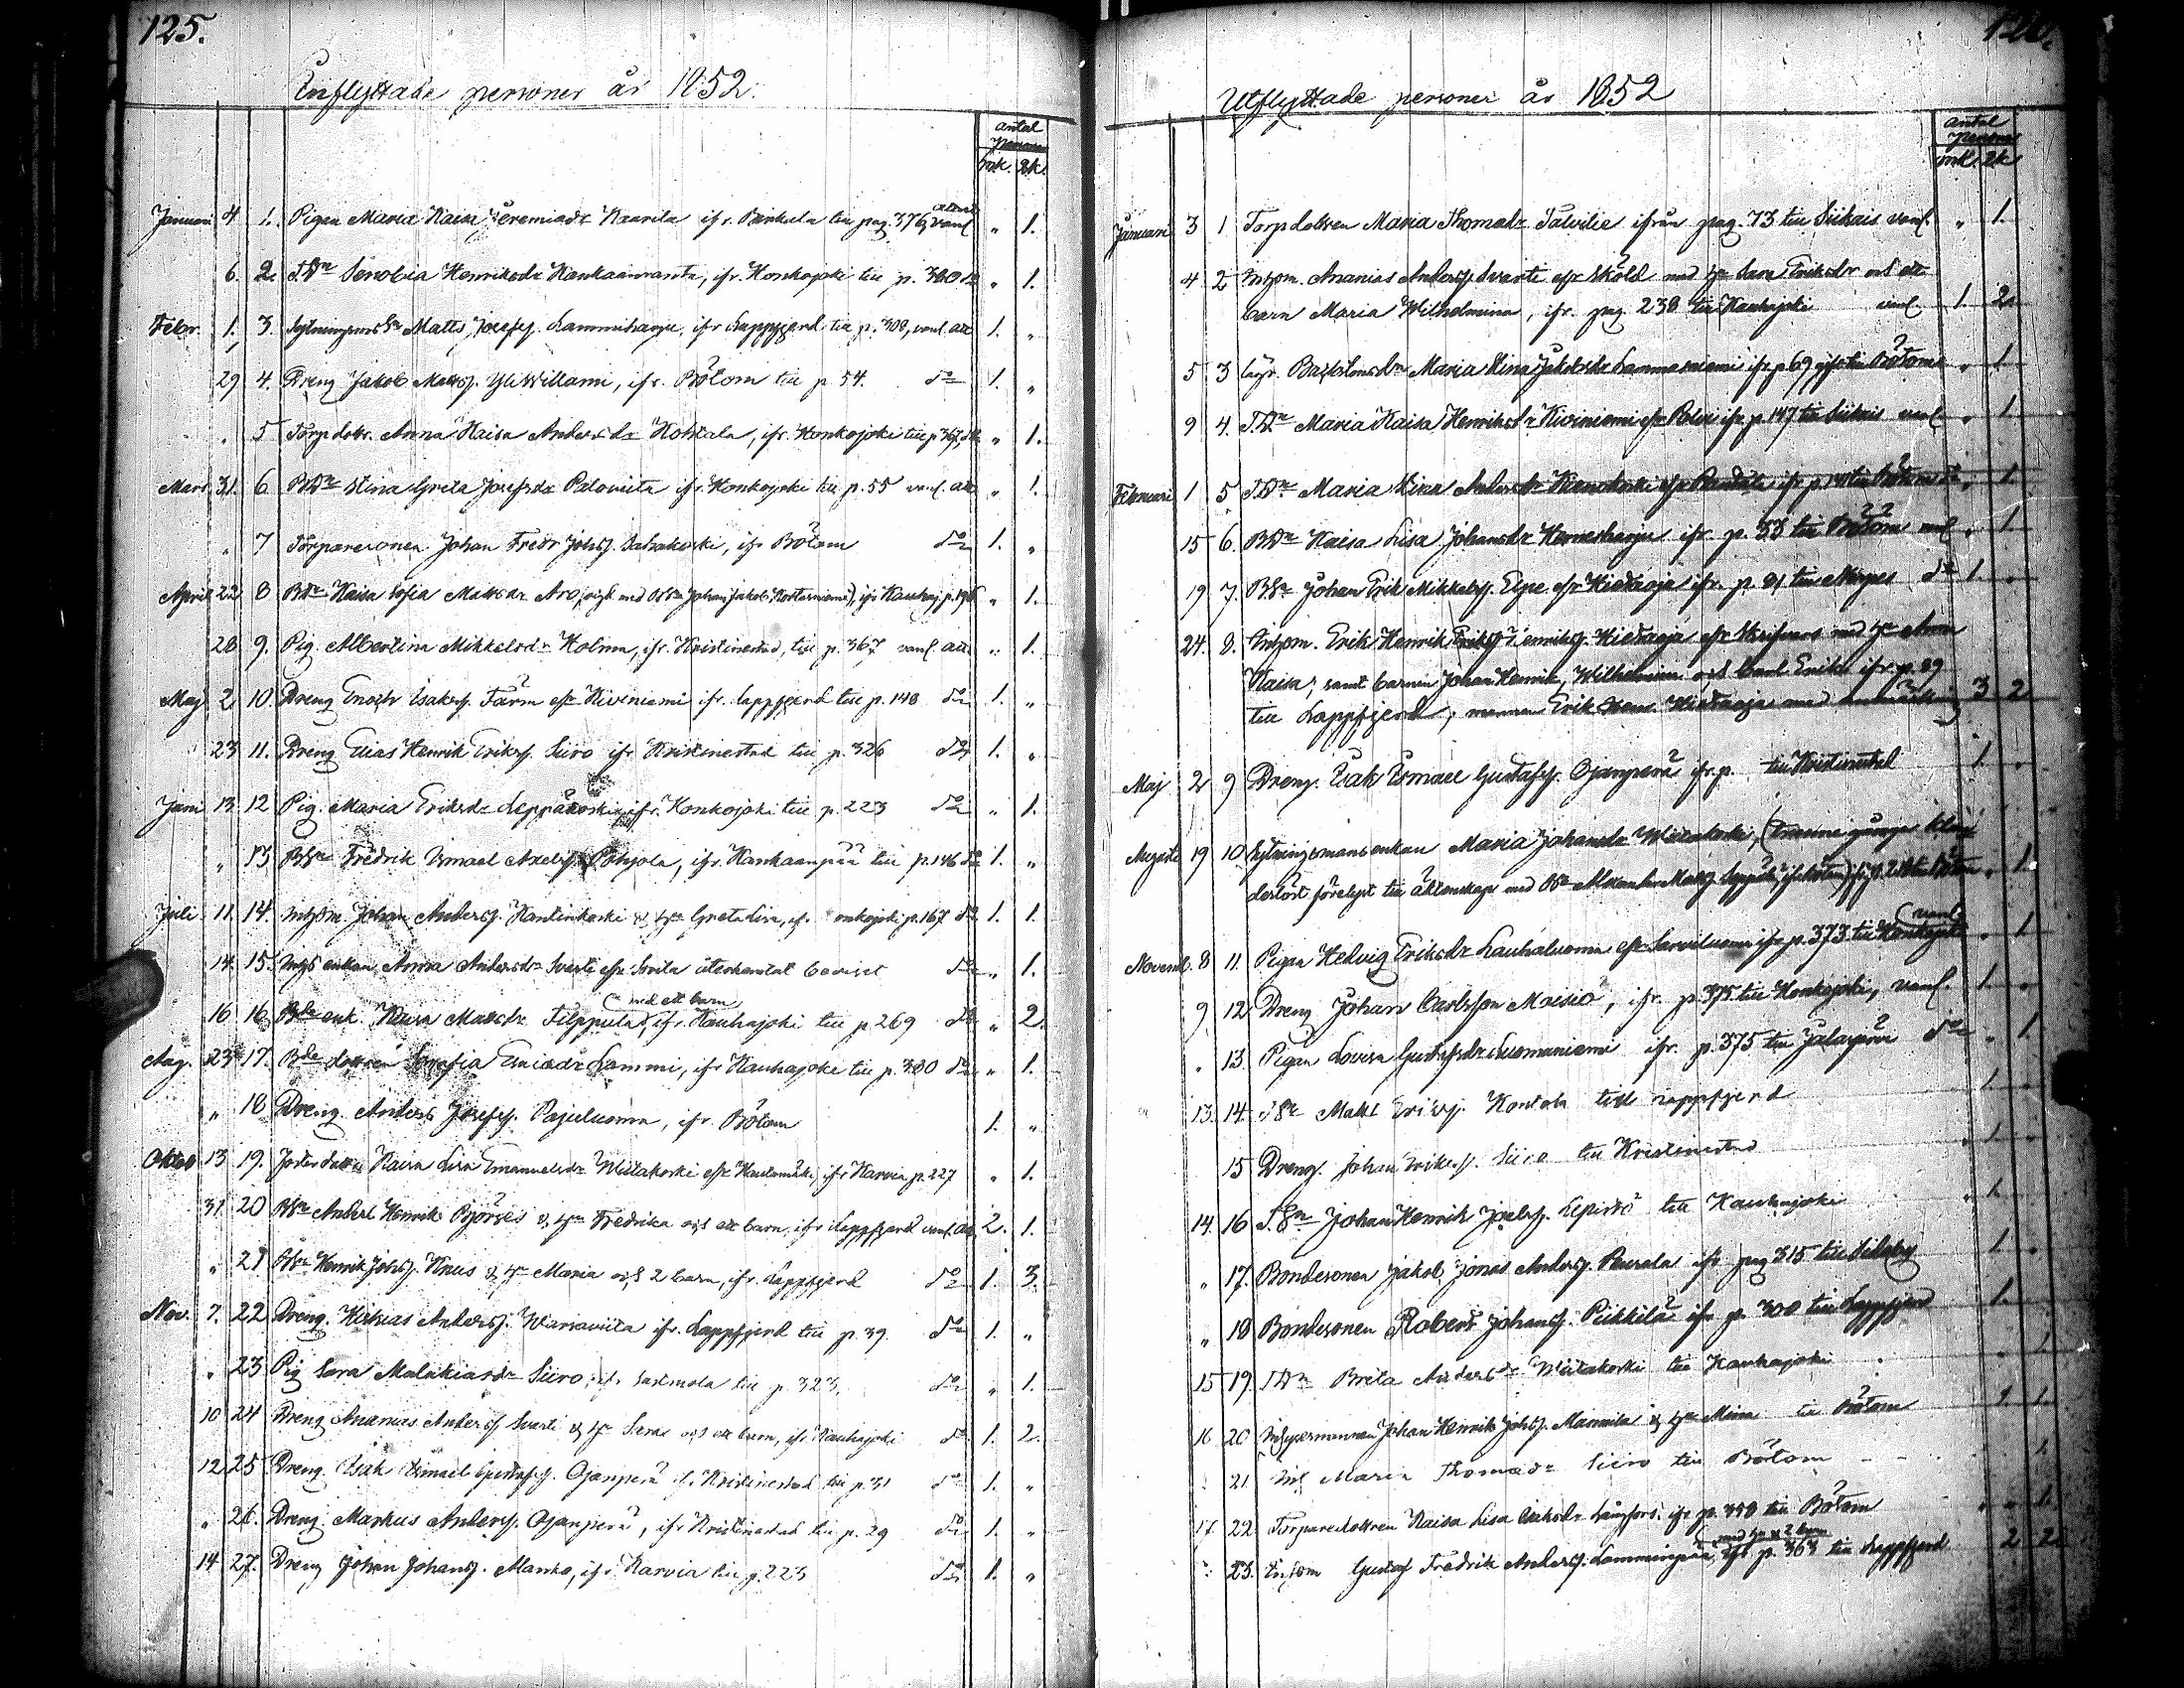 125.
Inflyttade personer år 1852.
antal
personer
mk. qk.
Januari 4 1. Pigan Maria Kaisa Jeremiadr Kaarila ifr. Birkala till pag. 376, vanl. attest „ 1.
6. 2. TDr Senobia Henriksdr Kankaanranta, ifr. Honkajoki till p. 380 do „ 1.
Febr. 1. 3. Sytningsms Sn Matts Josefss. Lammiharju, ifr Lappfjerd till p. 308, vanl. att 1. „
29 4. Dreng Jakob Mattss. Yli Willami, ifr. Bötom till p 54. do 1. „
„ 5 Torp dottr. Anna Kaisa Andersdr Koskela, ifr. Honkajoki till p 367, do „ 1.
Mars 31. 6. BDr Stina Greta Josefsdr Paloviita ifr. Honkajoki till p. 55 vanl. att „ 1.
„ 7 Torparesonen Johan Fredr Johss. Sahakoski, ifr Bötom do 1. „
April 22 8 BDr Kaisa Sofia Mattsdr Aro, (vigd med BSn Johan Jakob), ifr Kauhaj. p. 196 „ 1.
28 9. Pig. Albertina Mikkelsdr Holma, ifr. Kristinestad, till p. 367 vanl. att „ 1.
Maj 2 10. Dreng Enoch Isakss. Färm efr Kiviniemi ifr. Lappfjerd till p. 148 do 1. „
23 11. Dreng Elias Henrik Erikss. Siiro ifr Kristinestad till p. 326 do 1. „
Juni 13 12 Pig. Maria Eriksdr Leppäkoski, ifr. Honkajoki till p. 223 do „ 1.
„ 13 BSn Fredrik Ismael Axelss. Pohjola, ifr. Kankaanpää till p. 146 do 1. „
Juli 11. 14. Inhsm. Johan Anderss. Kantinkoski & hu Greta Lisa, ifr. Honkajoki p. 167 do 1. 1.
14. 15. Inhs enkan Anna Andersdr Svarti efr återhemtat beviset do „ 1.
16 16 Bde enk. Kaisa Mattsdr Filppula, (med ett barn) ifr. Kauhajoki till p 269 do „ 2.
Aug. 23 17. Bde dottren Sofia Esaiadr Lammi, ifr Kauhajoki till p. 380 do „ 1.
„ 18 Dreng Anders Josefss. Pajuluoma, ifr. Bötom 1. „
Oktob 13 19. Kaisa Lisa Emanuelsdr Wiitakoski efr Kuutomäki, ifr Karvia p. 227 „ 1.
31 20 BSn Anders Henrik Björses & hu Fredrika och ett barn, ifr Lappfjerd vanl. att 2. 1.
„ 21 BSn Henrik Johss. Knus & hu Maria och 2 barn, ifr. Lappfjerd do 1. 3.
Nov. 7. 22 Dreng. Hiskias Anderss. Wiarsaviita ifr. Lappfjerd till p. 39. do 1. „
„ 23 Pig Sara Malakiasdr Siiro, ifr Sastmola till p. 323. do „ 1.
10 24 Dreng Ananias Anderss Svarti & hu Sara och ett barn, ifr Kauhajoki do 1. 2.
12 25 Dreng. Isak Ismael Gustafss. Ojanperä ifr. Kristinestad till p. 31 do 1. „
„ 26. Dreng Markus Anderss. Ojanperä, ifr Kristinestad till p. 29 do 1. „
14 27. Dreng Johan Johanss. Manko, ifr. Karvia till p. 223 do 1. „
126.
Utflyttade personer år 1852
antal
personer
mk. qk.
Januari 3 1 Torp dottren Maria Thomadr Talvitie ifrån pag. 73 till Siikais vanl. „ 1.
4 2 Inhsm. Ananias Anderss. Svarti efr Sköld med hu Sara Eriksdr och ett
barn Maria Wilhelmina, ifr. pag. 238 till Kauhajoki vanl. 1. 2.
5 3 Maria Stina Jakobsdr Lammasniemi ifr. p 69 gift till Bötom „ 1
9 4. TDr Maria Kaisa Henriksdr Kiviniemi efr ifr. p. 147 till Siikais vanl. „ 1
Februari 1 5 TDr Maria Stina Andersdr ifr. p. till Bötom do „ 1
15 6. BDr Kaisa Lisa Johansdr Harjusharju ifr. p. 53 till Bötom vanl „ 1
19 7. BSn Johan Erik Mikkelss. Elge efr Hietaoja ifr. p. 21 till Nerpes do 1. „
24. 8. Inhsm. Erik Henrik Henrikss. Hietaoja efr Skrifvars med hu Anna
Kaisa, samt barnen Johan Henrik, Wilhelmina och Carl Erik ifr. p. 29
till Lappfjerd; 3 2
Maj 2 9 Dreng. Isak Ismael Gustafss. Ojanperä ifr. p. till Kristinestad 1 „
Augusti 19 10 Sytningsmans enkan Maria Johansdr Wiitakoski, (trenne gånger
förelyst till äktenskap med till Bötom „ 1
Novemb. 8 11. Pigan Hedvig Eriksdr Lauhaluoma ifr p. 373 till Honkajoki (vanl „ 1
9 12 Dreng Johan Carlsson Maisio, ifr. p. 375 till Honkajoki, vanl. 1. „
„ 13. Pigan Lovisa Gustafsdr Luomaniemi ifr. p. 375 till Jalasjärvi do „ 1
13. 14. TSn Matts Erikss. Kontola till Lappfjerd 1
15 Dreng. Johan Erikss. Siiro till Kristinestad 1
14. 16 TSn Johan Henrik Josefss. Lepistö till Kauhajoki 1.
„ 17. Bondesonen Jakob Jonas Anderss. Rusala ifr pag 315 till Sideby 1 „
„ 18 Bondesonen Robert Johanss. Piikkilä ifr. p. 300 till Lappfjerd 1.
15 19. TDr Brita Andersdr Wiitakoski till Kauhajoki „ 1
16 20 Johan Henrik Johss. Mannila & hu Maria till Bötom 1 1.
21 Maria Thomadr Siiro till Bötom 1
17. 22. Torparedottren Kaisa Lisa Isaksdr Långfors, ifr p. 398 till Bötom „ 1.
„ 23. Inhsm Gustaf Fredrik Anderss. Lamminpää, (med hu & 2 barn) ifr p. 363 till Lappfjerd 2 2